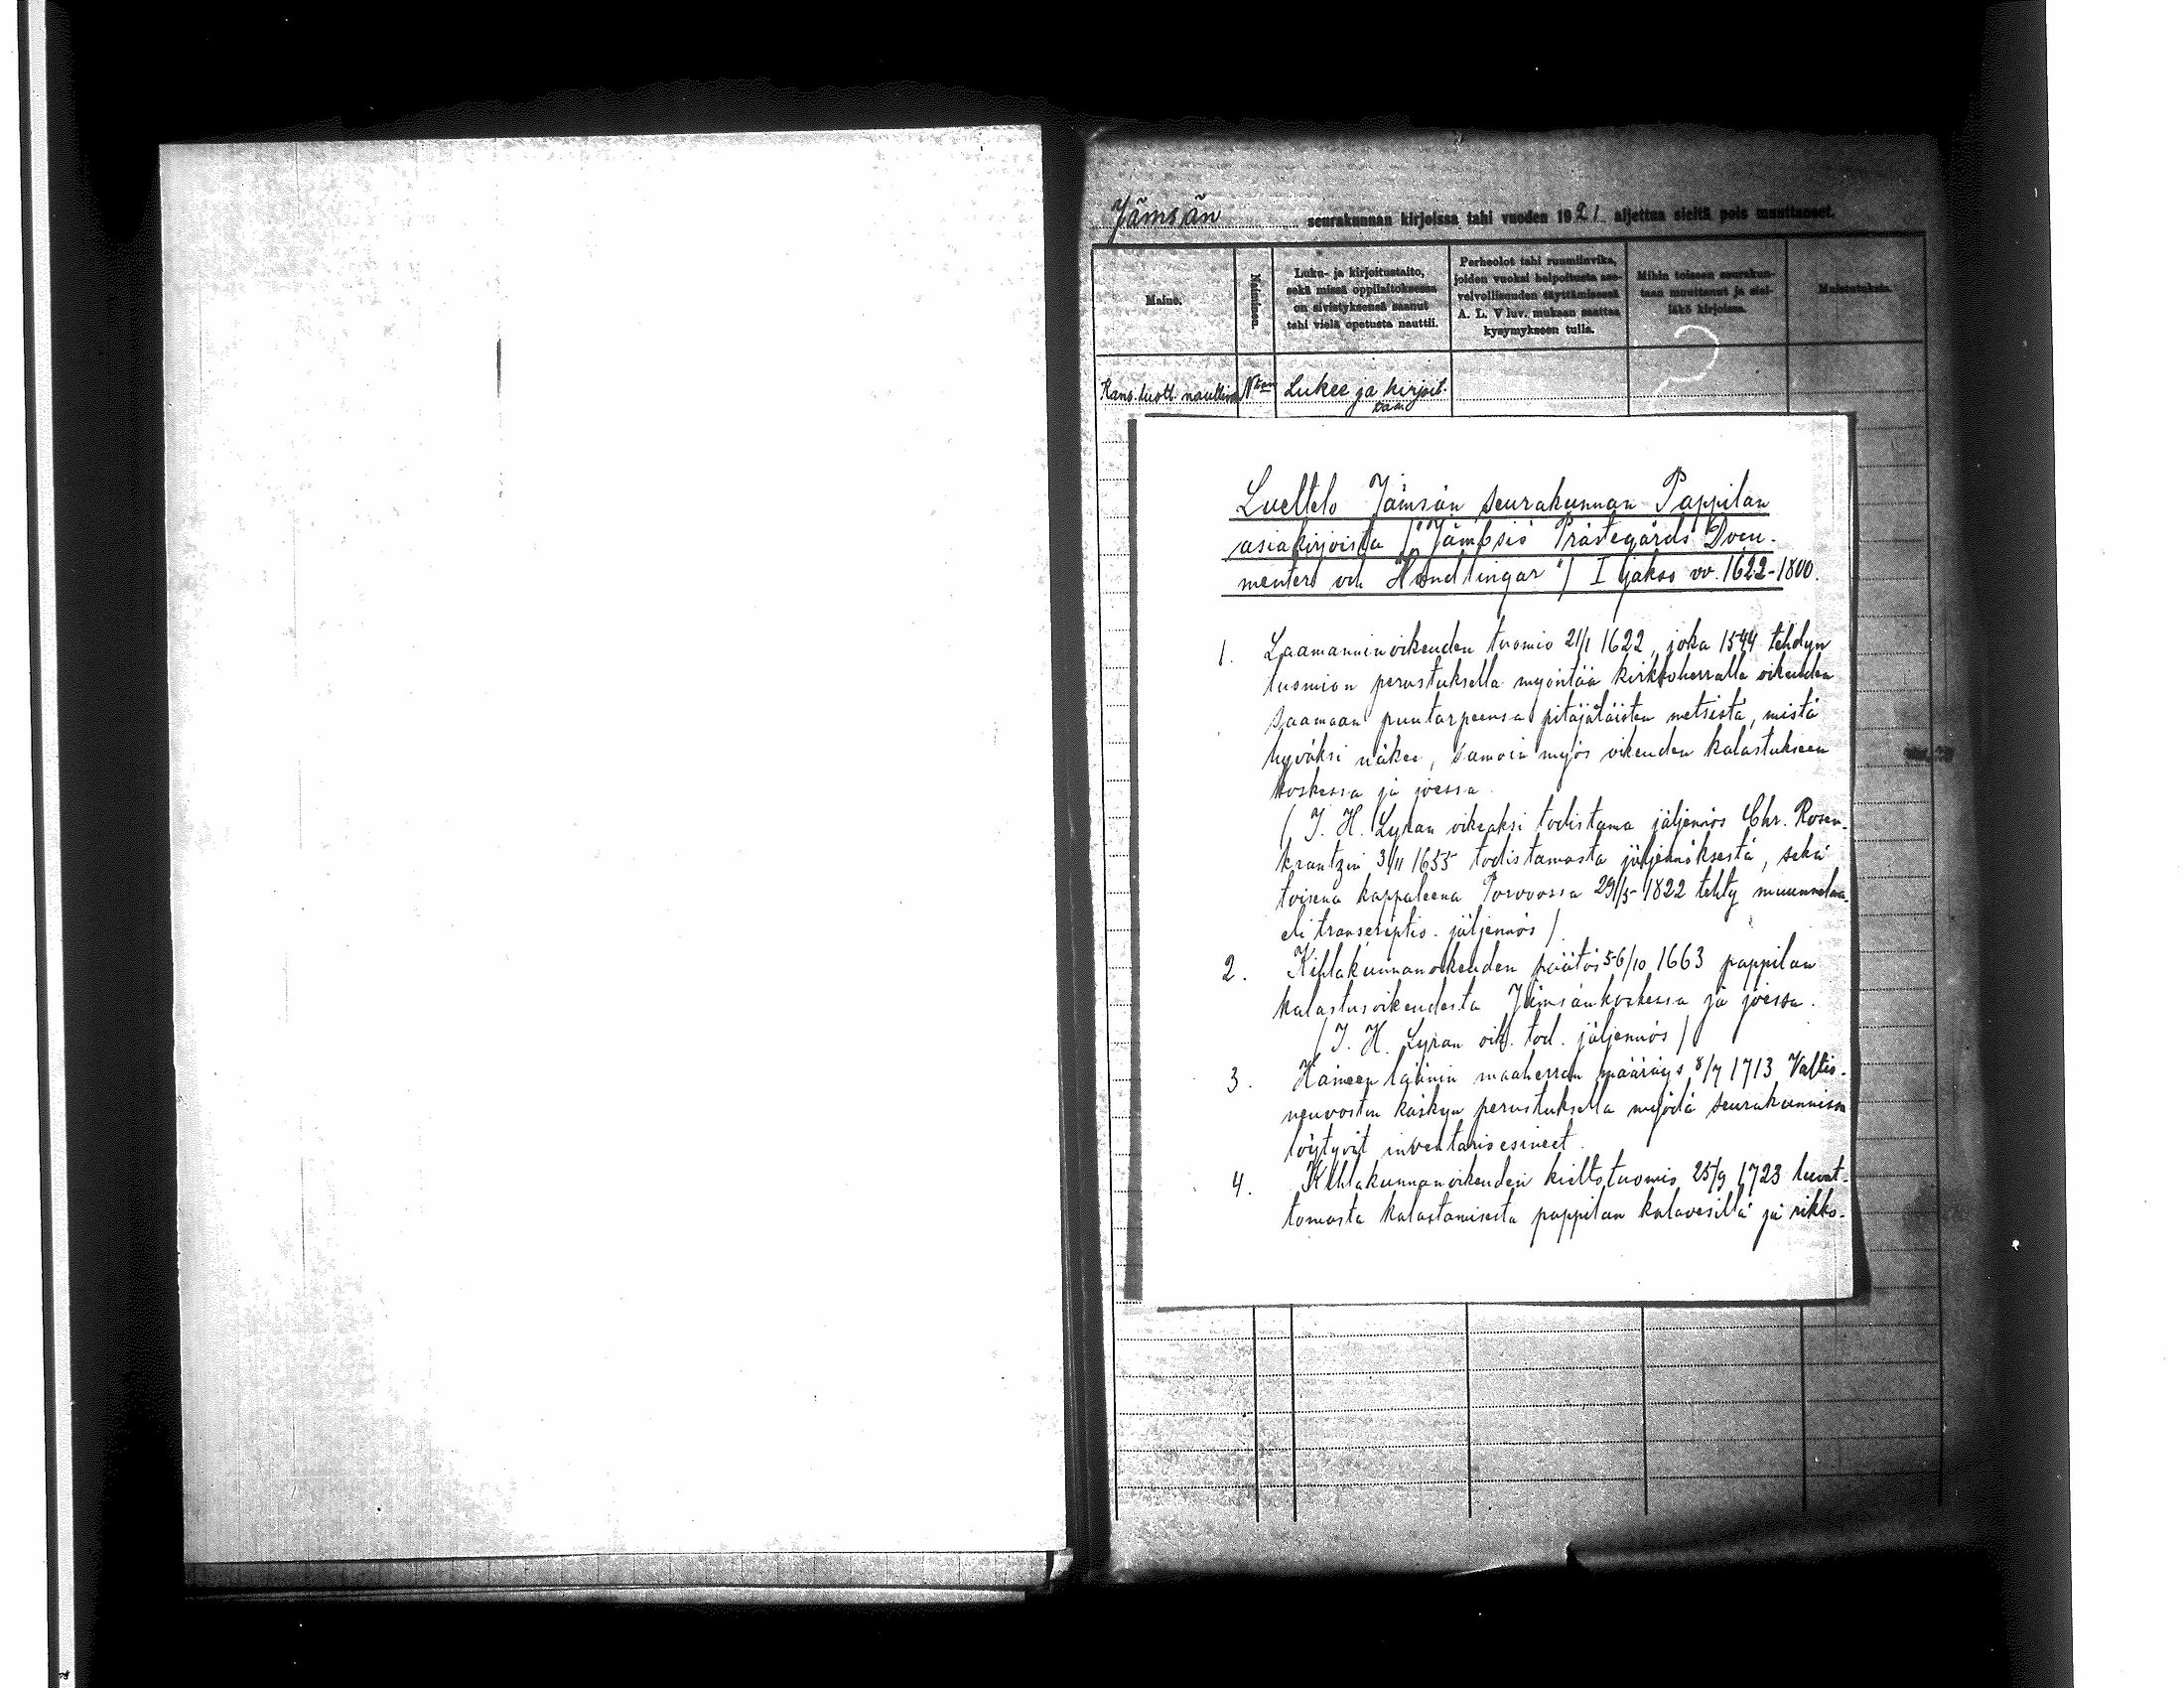 Jämsän seurakunnan kirjoissa tahi vuoden 1921 aljettua sieltä pois muuttaneet.
Maine.
Naiminen.
Luku- ja kirjoitustaito,
sekä missä oppilaitoksessa
on sivistyksensä saanut
tahi vielä opetusta nauttii.
Perheolot tahi ruumiinvika,
joiden vuoksi helpoitusta ase-
velvollisuuden täyttämisessä
A. L. V luv. mukaan saattaa
kysymykseen tulla.
Mihin toiseen seurakun-
taan muuttanut ja siel-
läkö kirjoissa.
Muistutuksia.
Kans. luott. nauttiva Nton Lukee ja kirjoit.
Luettelo Jämsän seurakunnan Pappilan
asiakirjoista /"Jämbsiö Prästegårds Docu-
menter och Handlingar"/ I jakso vv. 1622-1800.
1. Laamanninoikeuden tuomio 21/1 1622, joka 1544 tehdyn
tuomion perustuksella myöntää kirkkoherralle oikeuden
saamaan puutarpeensa pitäjäläisten metsistä, mistä
hyväksi näkee, samoin myös oikeuden kalastukseen
koskessa ja joessa.
/ J. H. Lyran oikeaksi todistama jäljennös Chr. Rosen-
krantzin 3/11 1655 todistamasta jäljennöksestä, sekä
toisena kappaleena Porvoossa 29/5 1822 tehty muunnelma-
eli transcriptio-jäljennös /
2. Kihlakunnanoikeuden päätös 5-6/10 1663 pappilan
kalastusoikeudesta Jämsänkoskessa ja joessa.
/ J. H. Lyran oik. tod. jäljennös /
3. Hämeen läänin maaherran määräys 8/7 1713 Valtio-
neuvoston käskyn perustuksella myödä seurakunnissa
löytyvät inventarioesineet.
4. Kihlakunnanoikeuden kieltotuomio 25/9 1723 luvat-
tomasta kalastamisesta pappilan kalavesillä ja rikko-